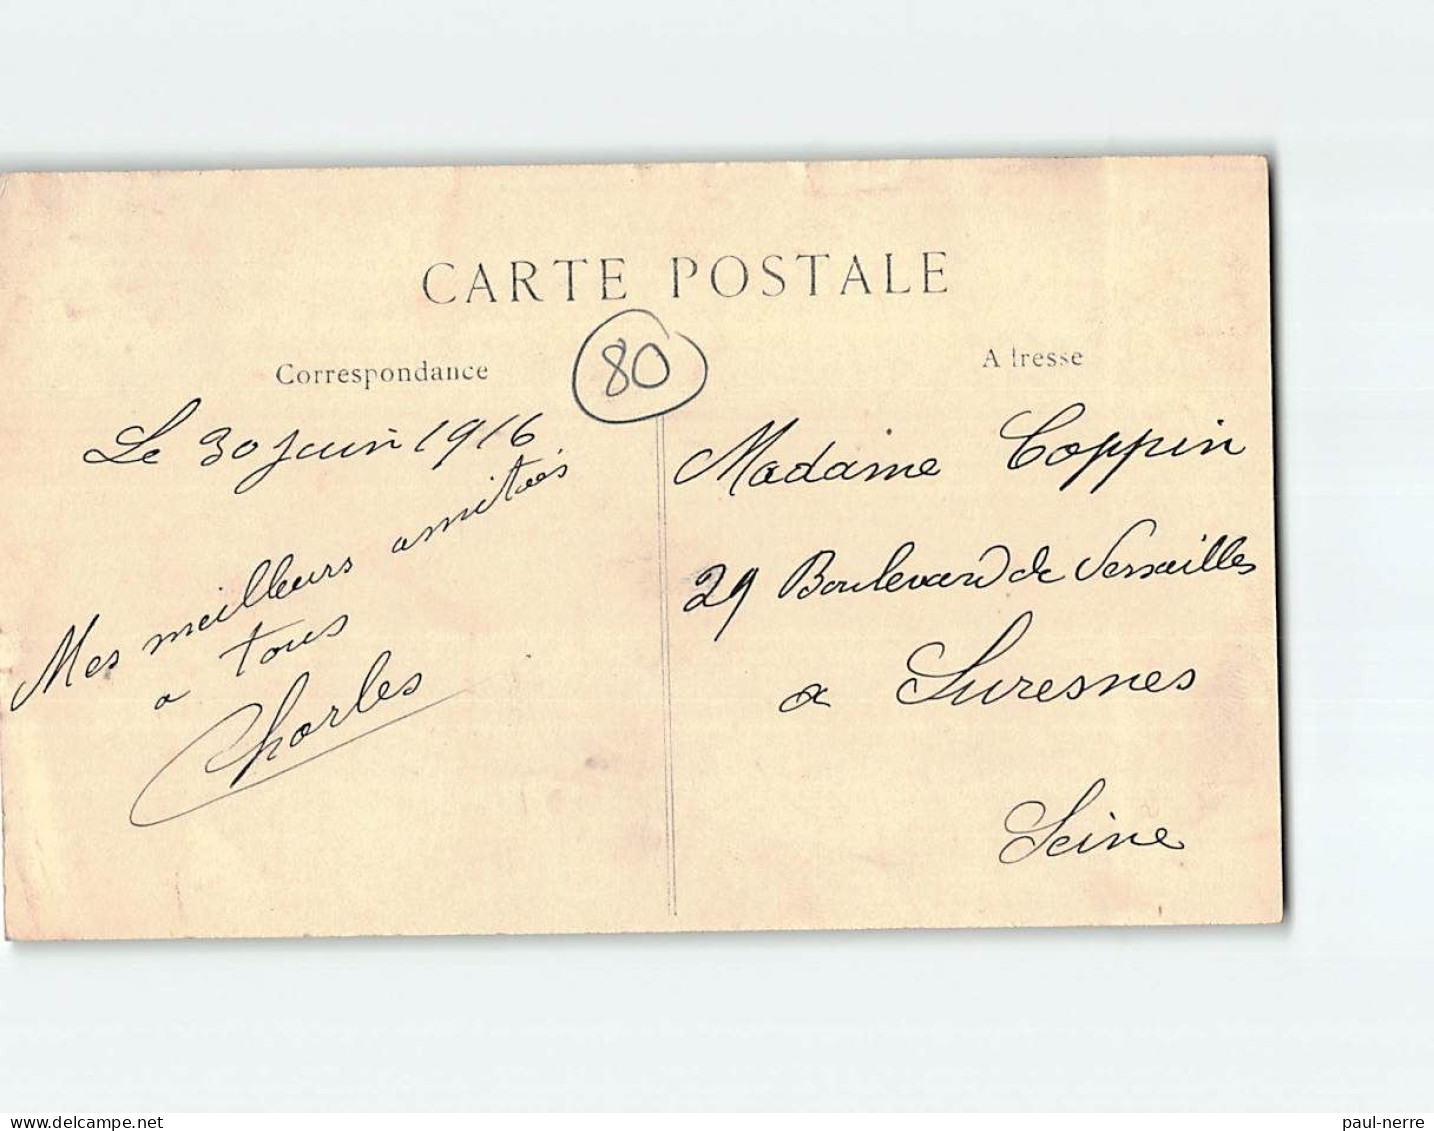 CARTE POSTALE
80
Correspondance
Le 30 Juin 1916
Mes meilleurs amitiés
a tous
Charles
Adresse
Madame Coppin
29 Boulevard de Versailles
a Suresnes
Seine
paul-nerre